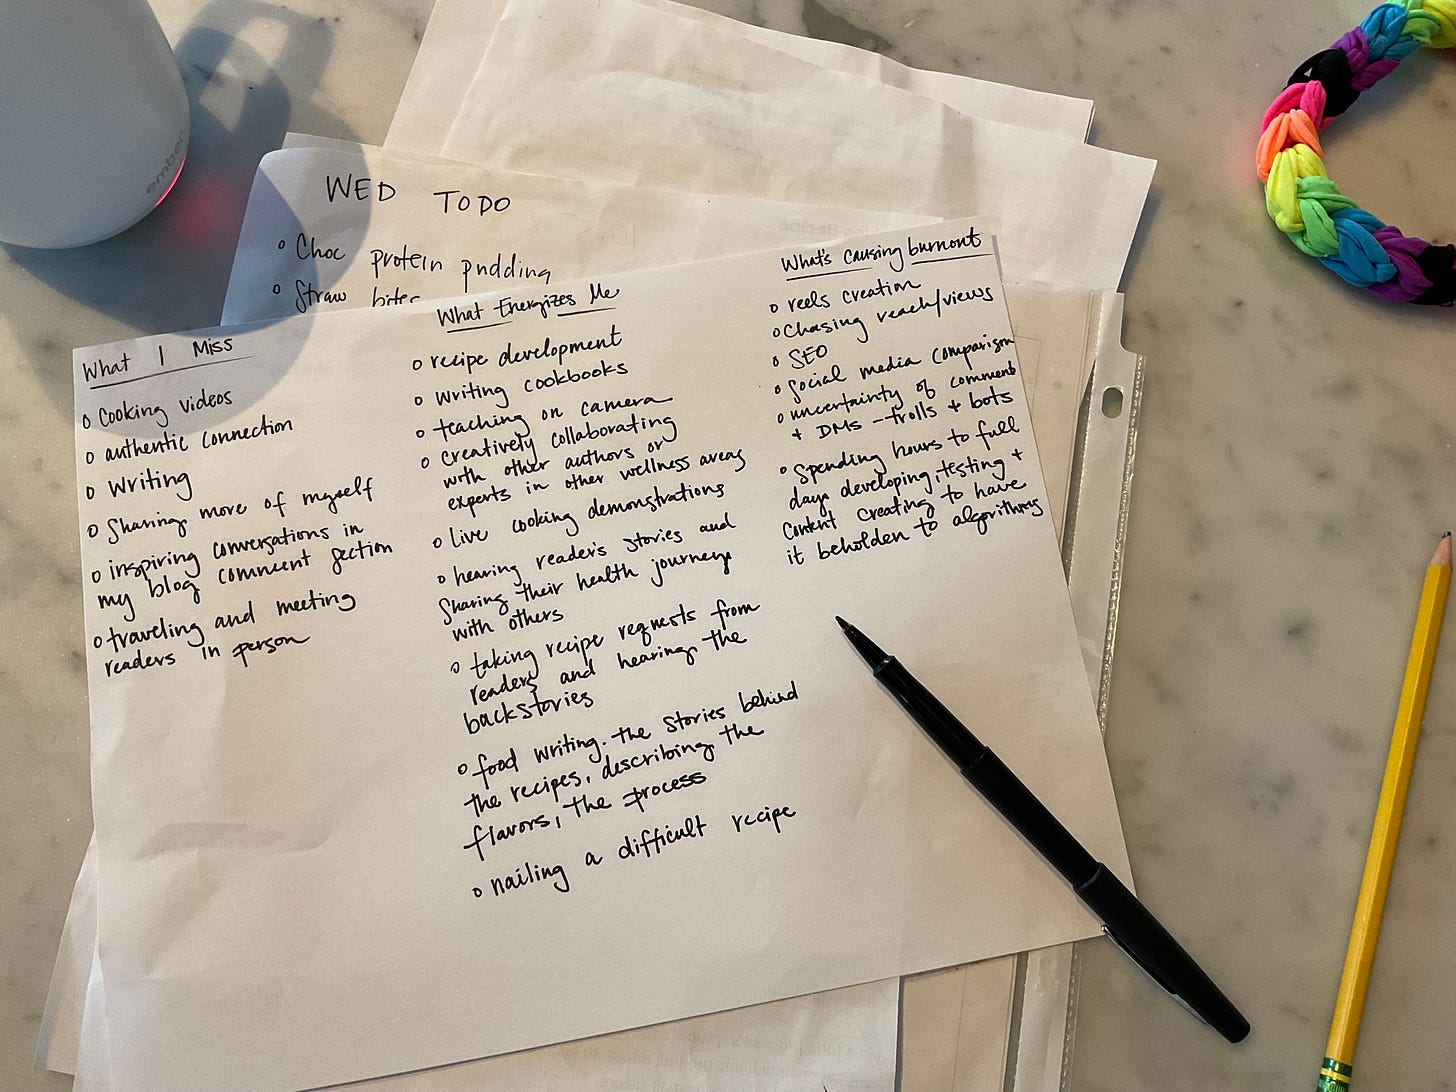 ember
WED TODO
Choc protein pudding
Straw bites
What I Miss
o Cooking videos
o authentic connection
o writing
o Sharing more of myself
o inspiring conversations in
my blog comment section
o traveling and meeting
readers in person
What Energizes Me
o recipe development
o writing cookbooks
o teaching on camera
o creatively collaborating
with other authors or
experts in other wellness areas
o live cooking demonstrations
o hearing reader's stories and
Sharing their health journeys
with others
o taking recipe requests from
readers and hearing the
backstories
o food writing. the stories behind
the recipes, describing the
flavors, the process
o nailing a difficult recipe
What's causing burnout
o reels creation
o Chasing reach/views
o SEO
o social media comparison
o uncertainty of comments
+ DMs - trolls + bots
o Spending hours to full
days developing, testing +
content creating to have
it beholden to algorithms